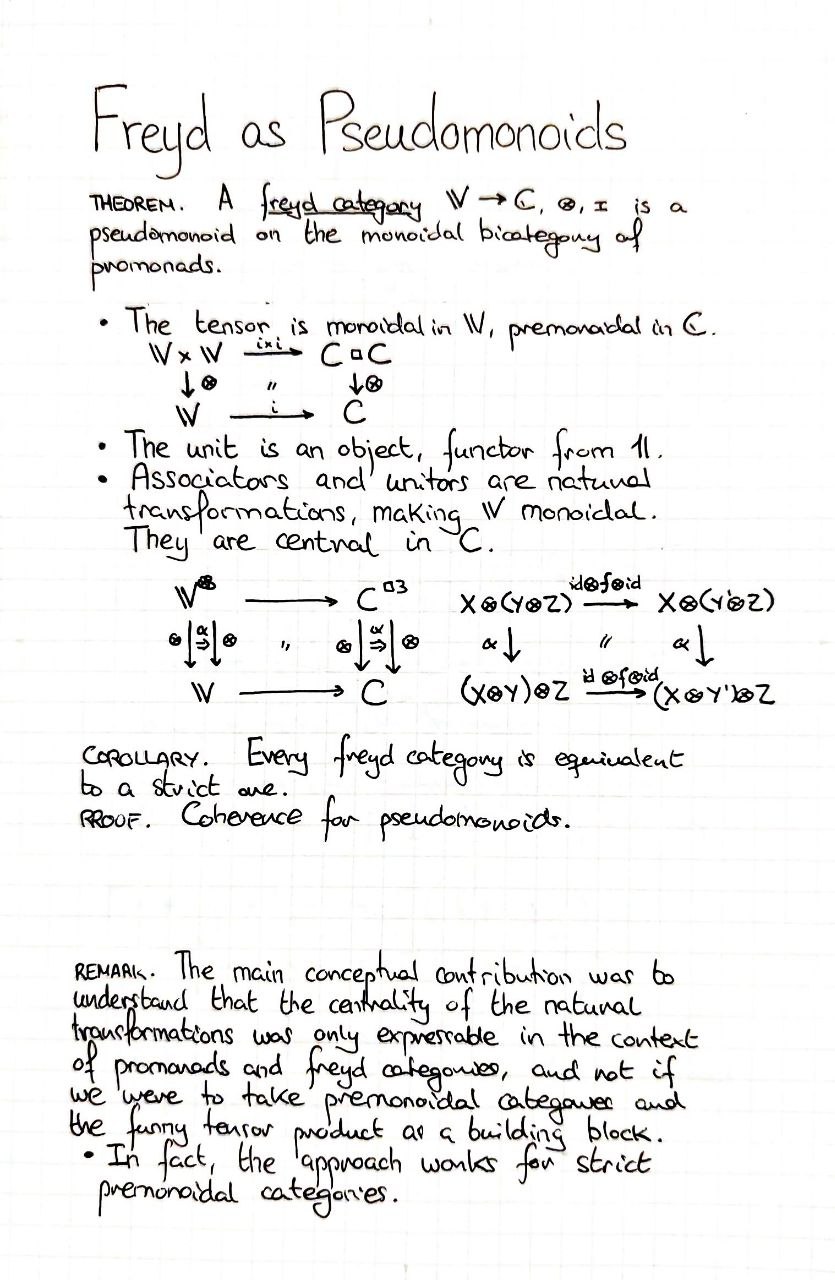 Freyd as Pseudomonoids
THEOREM. A freyd category 𝕍 → ℂ, ⊗, I is a
pseudomonoid on the monoidal bicategory of
promonads.
• The tensor is monoidal in 𝕍, premonoidal in ℂ.
𝕍 × 𝕍 —i×i→ C □ C
↓⊗ " ↓⊗
𝕍 —i→ C
• The unit is an object, functor from 𝟙.
• Associators and unitors are natural
transformations, making 𝕍 monoidal.
They are central in C.
id⊗f⊗id
𝕍 → C□3 X⊗(Y⊗Z) → X⊗(Y'⊗Z)
⊗↓α⇒↓⊗ " ⊗↓α⇒↓⊗ α↓ " α↓
id⊗f⊗id
𝕍 → C (X⊗Y)⊗Z → (X⊗Y')⊗Z
COROLLARY. Every freyd category is equivalent
to a strict one.
PROOF. Coherence for pseudomonoids.
REMARK. The main conceptual contribution was to
understand that the centrality of the natural
transformations was only expressable in the context
of promonads and freyd categories, and not if
we were to take premonoidal categories and
the funny tensor product as a building block.
• In fact, the approach works for strict
premonoidal categories.